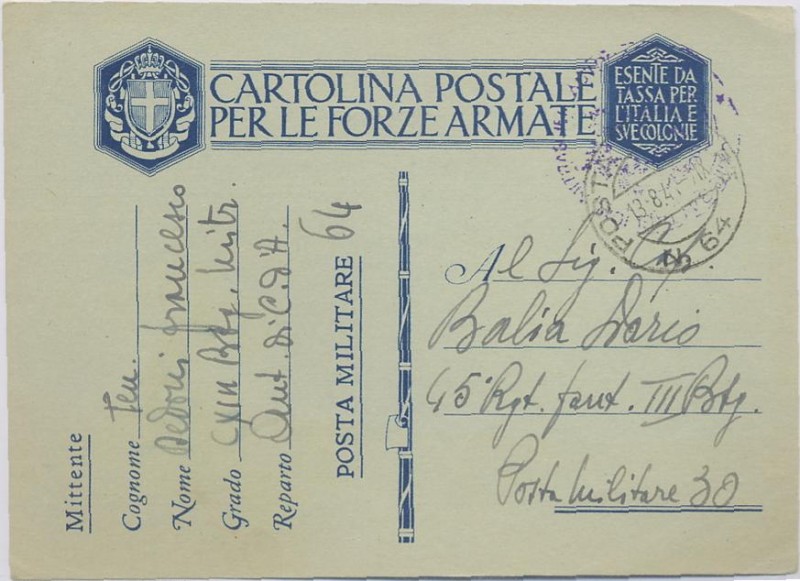 CARTOLINA POSTALE
PER LE FORZE ARMATE
ESENTE DA
TASSA PER
L'ITALIA E
SVE COLONIE
POSTA
13.8.41
N 64
Mittente
Cognome Ten.
Nome Francesco
Grado Btg. Mitr.
Reparto Div. C. d'A.
POSTA MILITARE 64
Al Sig. Cap.
Balia Dario
45° Rgt. fant. III Btg.
Posta Militare 30